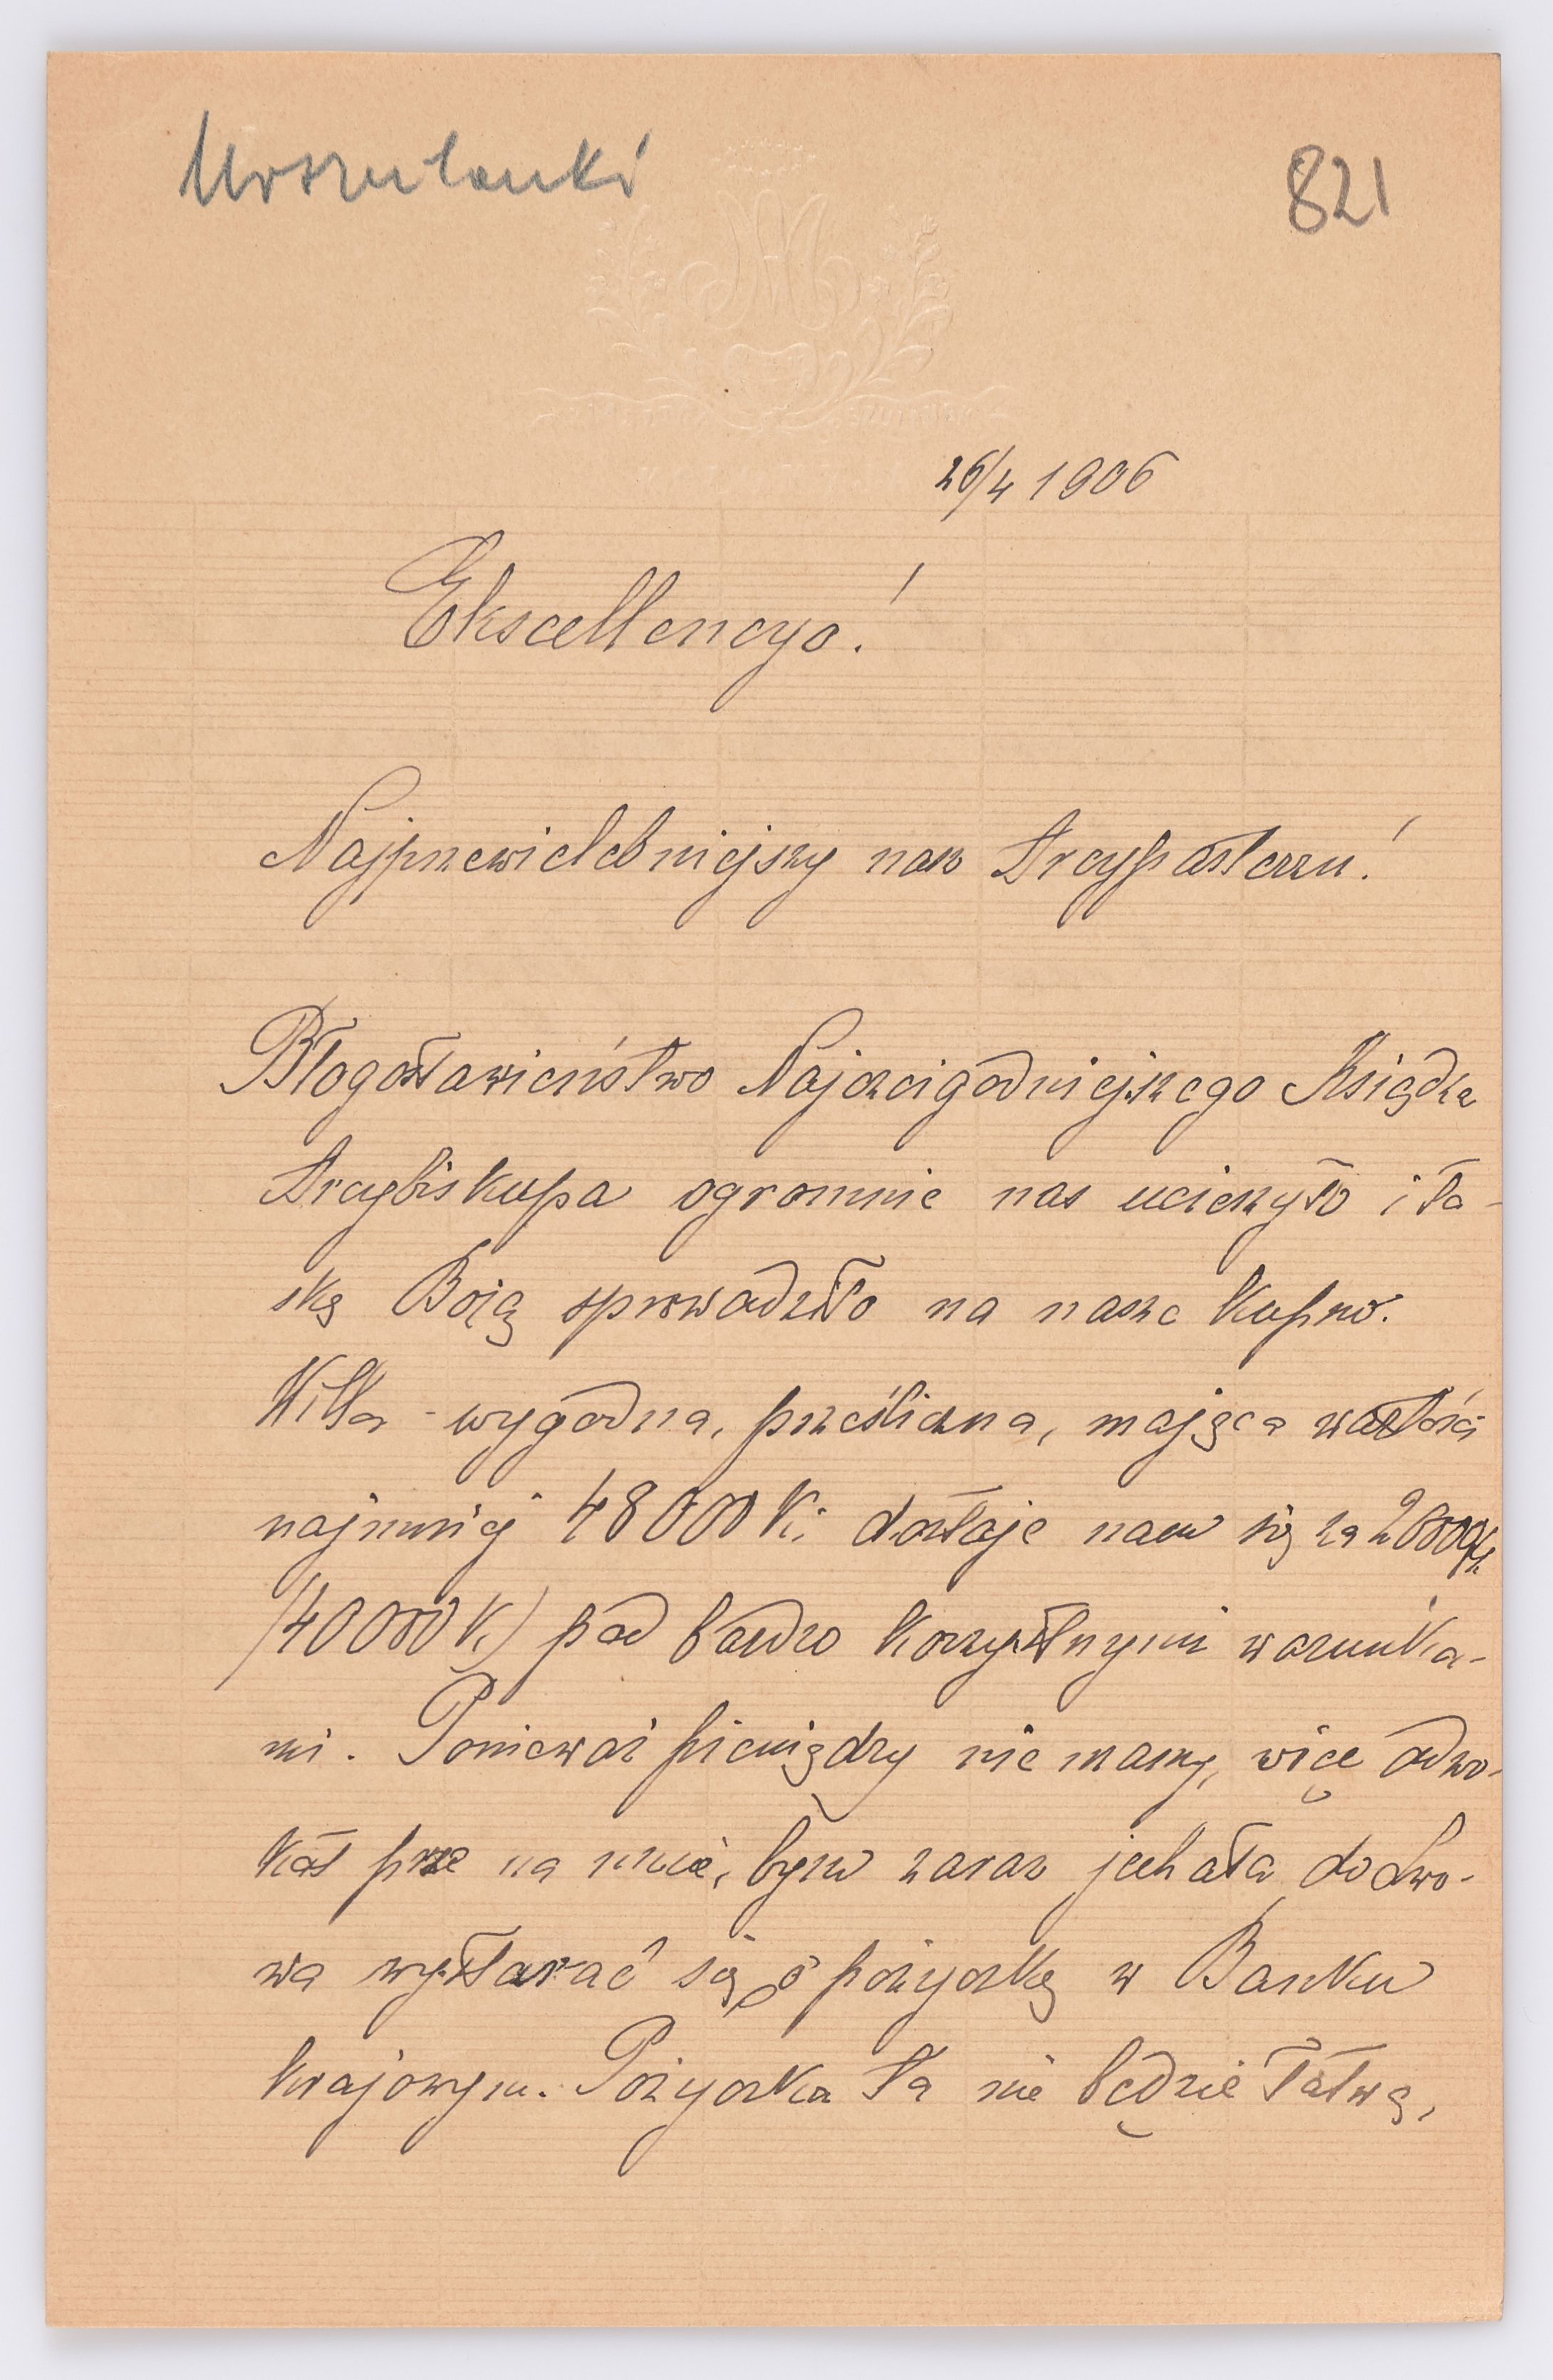 Urszulanki
821
26/4 1906
Ekscellencyo!
Najprzewielebniejszy nasz Arcypasterzu!
Błogosławieństwo Najczcigodniejszego Księdza
Arcybiskupa ogromnie nas ucieszyło i ła-
skę Bożą sprowadziło na nasze kupno.
Willa - wygodna, prześliczna, mająca wartość
najmniej 48000 K. dostaje nam się za 20000
/40000 K./ pod bardzo korzystnymi warunka-
mi. Ponieważ pieniędzy nie mamy, więc adwo-
kat prze na mnie, bym zaraz jechała do Lwo-
wa wystarać się o pożyczkę w Banku
krajowym. Pożyczka ta nie będzie łatwą,